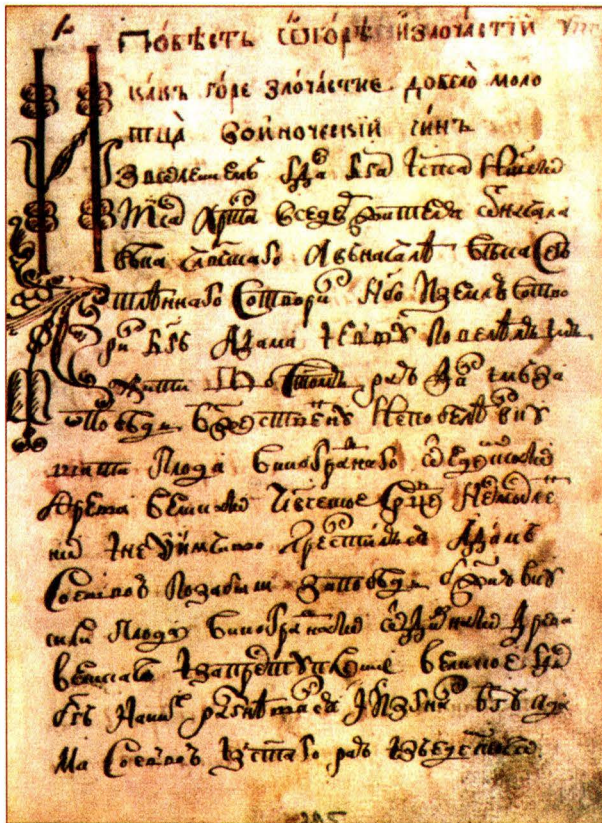 Повѣсть ѡ горѣ и злочастїи
какъ горе злочастие довело моло
тца во иноческїй чинъ
Изволениемъ гда бга и спса нше
Хрта вседержителя ѿ начала
вѣка
сотвори нбо и землю сотво
ри бгъ адама и евву повелѣлъ имъ
жити во стомъ раю да имъ за
повѣдь бжественну не повелѣ вку
шати плода виноградного ѿ едемского
древа великого члвческое срце несмысле
но и неуимчиво прелстился адамъ
со еввою позабыли заповѣдь бжию вку
сили плода виноградного ѿ дивного древа
великого и за преступление великое гдь
бгъ на них разгнѣвался и изгна бгъ ада
ма со еввою из стаго раю из едемского